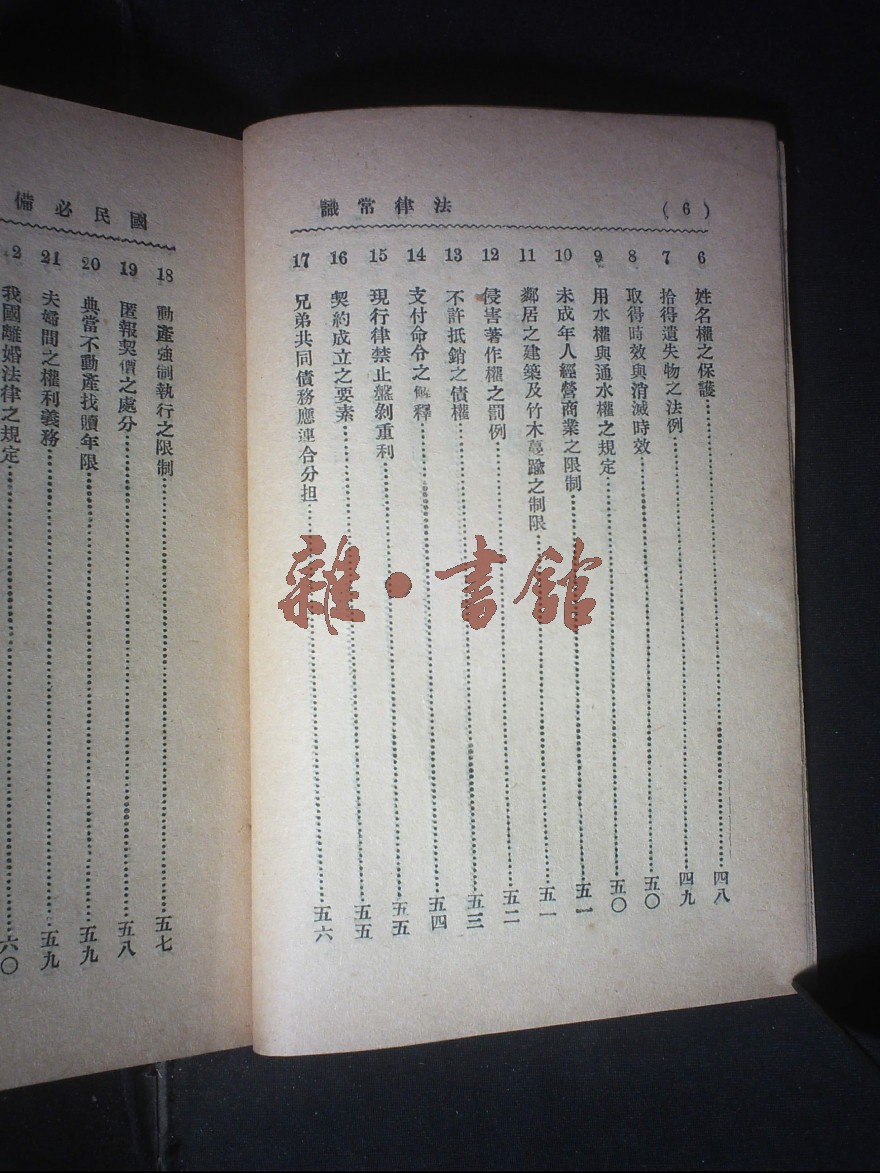 法律常識 (6)
6 姓名權之保護 四八
7 拾得遺失物之法例 四九
8 取得時效與消滅時效 五〇
9 用水權與通水權之規定 五〇
10 未成年人經營商業之限制 五一
11 鄰居之建築及竹木蔓踰之制限 五一
12 侵害著作權之罰例 五二
13 不許抵銷之債權 五三
14 支付命令之解釋 五四
15 現行律禁止盤剝重利 五五
16 契約成立之要素 五五
17 兄弟共同債務應連合分担 五六
國民必備
18 動產強制執行之限制 五七
19 匿報契價之處分 五八
20 典當不動產找贖年限 五九
21 夫婦間之權利義務 五九
2 我國離婚法律之規定 六〇
雜·書館